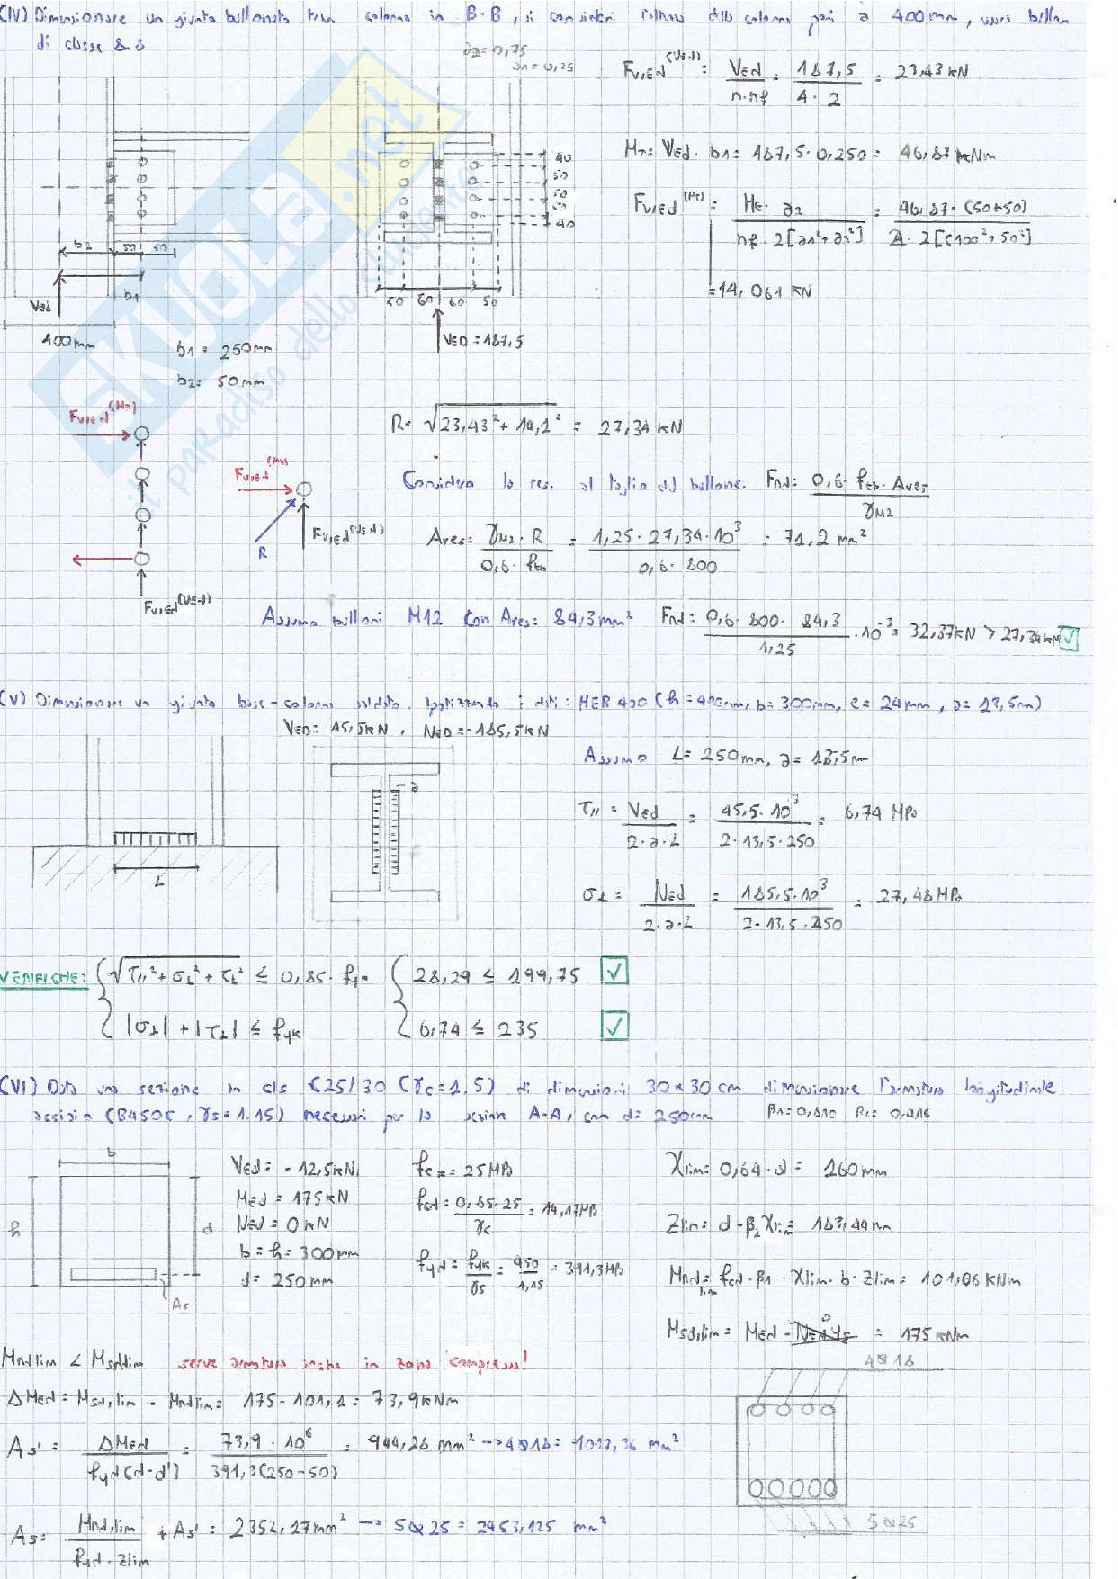 (IV) Dimensionare un giunto bullonato trave colonna in B-B, si consideri l'altezza della colonna pari a 400mm, usare bulloni
di classe 8.8
a2=0,75
a1=0,25
Fv,Ed (Ved) = Ved / n·nf = 187,5 / 4·2 = 23,43 kN
MT = Ved · b1 = 187,5 · 0,250 = 46,87 kNm
Fv,Ed (MT) = Mt · a2 / nf · 2[a1²+a2²] = 46,87 · (50+50) / 2 · 2[(100²+50²]
= 14,061 kN
40
50
50
50
40
b2 50 50
b1
Ved
400mm
b1 = 250mm
b2 = 50mm
50 60 60 50
VED = 187,5
Fv,Ed (MT)
R = √23,43² + 14,1² = 27,34 kN
Fv,Ed (MT)
R
Fv,Ed (Ved)
Fv,Ed (Ved)
Considero la res. al taglio del bullone. Frd = 0,6 · ftb · Ares / γM2
Ares = γM2 · R / 0,6 · ftb = 1,25 · 27,34 · 10³ / 0,6 · 800 = 71,2 mm²
Assumo bulloni M12 con Ares = 84,3mm² Frd = 0,6 · 800 · 84,3 / 1,25 · 10⁻³ = 32,37kN > 27,34kN ✓
(V) Dimensionare un giunto base-colonna saldato. Ipotizzando i dati: HEB 400 (h=400mm, b=300mm, e=24mm, a=13,5mm)
VED = 45,5kN , NED = -185,5kN
Assumo L= 250mm, a= 13,5mm
a
L
τ// = Ved / 2·a·L = 45,5·10³ / 2·13,5·250 = 6,74 MPa
σ⊥ = Ned / 2·a·L = 185,5·10³ / 2·13,5·250 = 27,48 MPa
VERIFICHE: √τ//²+σ⊥²+τ⊥² ≤ 0,85·fyk 28,29 ≤ 199,75 ✓
|σ⊥| + |τ⊥| ≤ fyk 6,74 ≤ 235 ✓
(VI) Data una sezione in cls C25/30 (γc=1,5) di dimensioni 30x30 cm dimensionare l'armatura longitudinale
(B450C, γs=1.15) necessari per la sezione A-A, con d= 250mm β1=0,810 β2= 0,416
b
h
d
As
Ved = -12,5kN
Med = 175kN
Ned = 0kN
b = h = 300mm
d = 250mm
fck = 25MPa
fcd = 0,85·25 / γc = 14,17MPa
fyd = fyk / γs = 450 / 1,15 = 391,3MPa
Xlim = 0,64·d = 160mm
Zlim = d-β2 Xlim = 183,44mm
Mrd,lim = fcd·β1·Xlim·b·Zlim = 101,06kNm
Msd,lim = Med - Ned·ys 0 = 175kNm
Mrd,lim < Msd,lim serve armatura anche in zona compressa!
ΔMed = Msd,lim - Mrd,lim = 175-101,1 = 73,9kNm
As' = ΔMed / fyd(d-d') = 73,9·10⁶ / 391,3(250-50) = 944,26 mm² → 4Ø18 = 1017,36 mm²
As = Mrd,lim / fyd·Zlim + As' = 2352,27mm² → 5Ø25 = 2453,125 mm²
4Ø18
5Ø25
SKUOLA.net
il paradiso dello studente